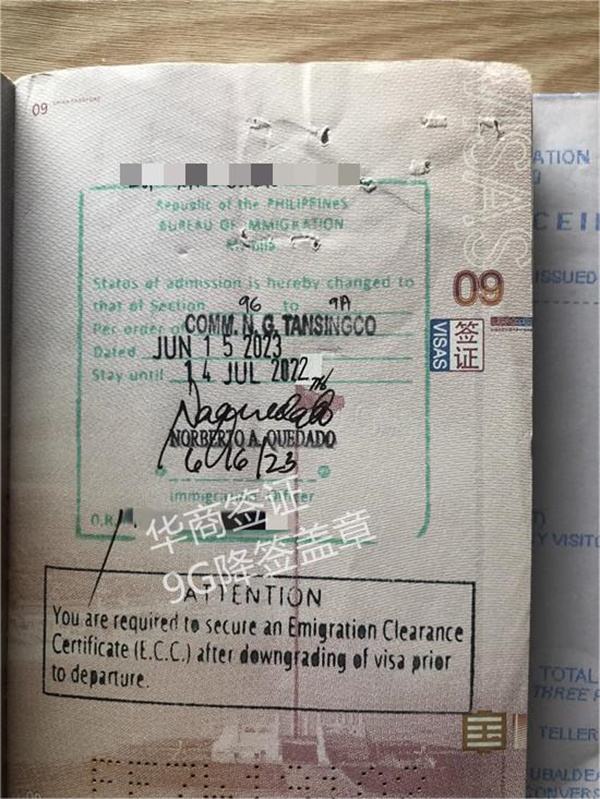 09
Republic of the PHILIPPINES
BUREAU OF IMMIGRATION
Status of admission is hereby changed to
that of Section 9G to 9A
Per order of COMM. N. G. TANSINGCO
Dated JUN 15 2023
Stay until 14 JUL 2022
NORBERTO A. QUEDADO
6/16/23
Immigration Officer
O.R.
华商签证
9G降签盖章
ATTENTION
You are required to secure an Emigration Clearance
Certificate (E.C.C.) after downgrading of visa prior
to departure.
VISAS
09
VISAS
签证
09
ATION
CEI
ISSUED
Y VISITO
TOTAL
THREE P
TELLER
UBALDEA
CONVERS